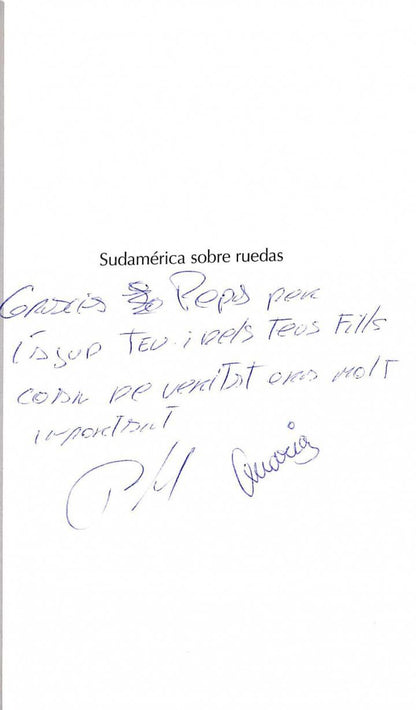 Sudamérica sobre ruedas
Gracies Pepa per
l'ajud teu i dels teus fills
de veritat molt
important
Maria